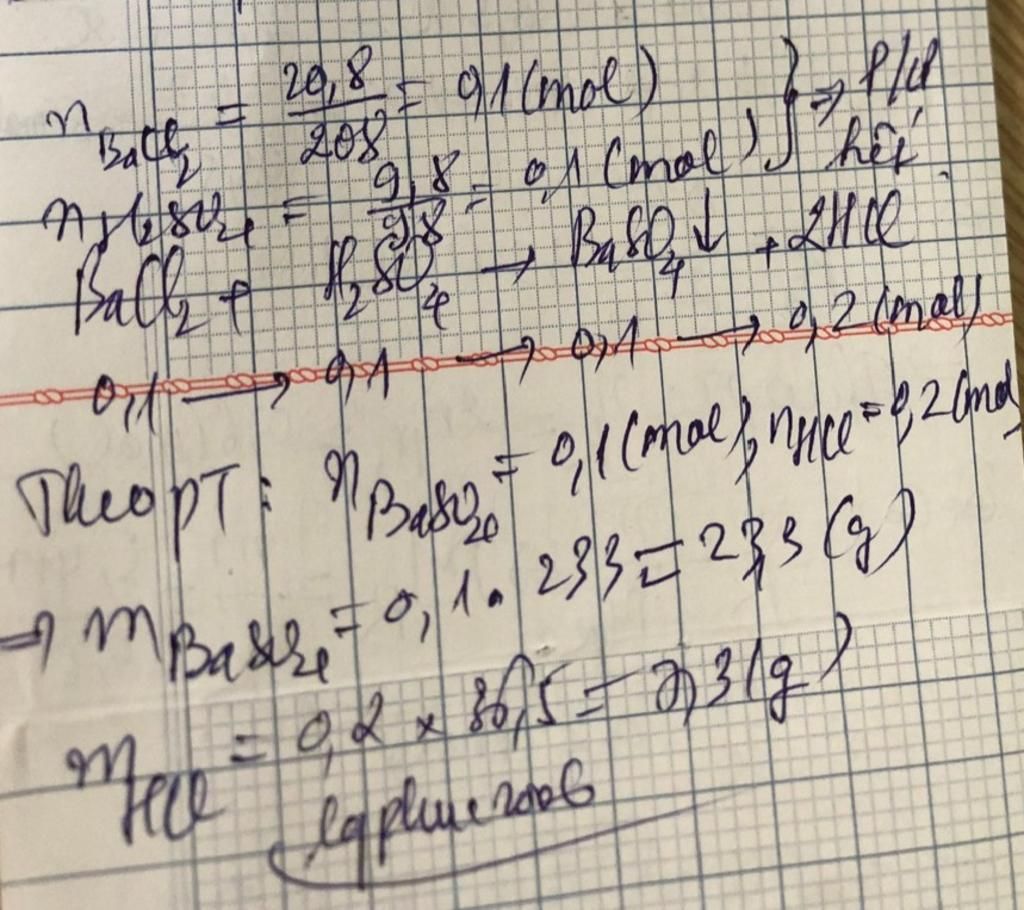 n BaCl2 = 20,8/208 = 0,1 (mol) } => P/Ư
n H2SO4 = 9,8/98 = 0,1 (mol) hết
BaCl2 + H2SO4 → BaSO4↓ + 2HCl
0,1 → 0,1 → 0,1 → 0,2 (mol)
Theo PT: n BaSO4 = 0,1 (mol), n HCl = 0,2 (mol
=> m BaSO4 = 0,1 . 233 = 23,3 (g)
m HCl = 0,2 x 36,5 = 7,3 (g)